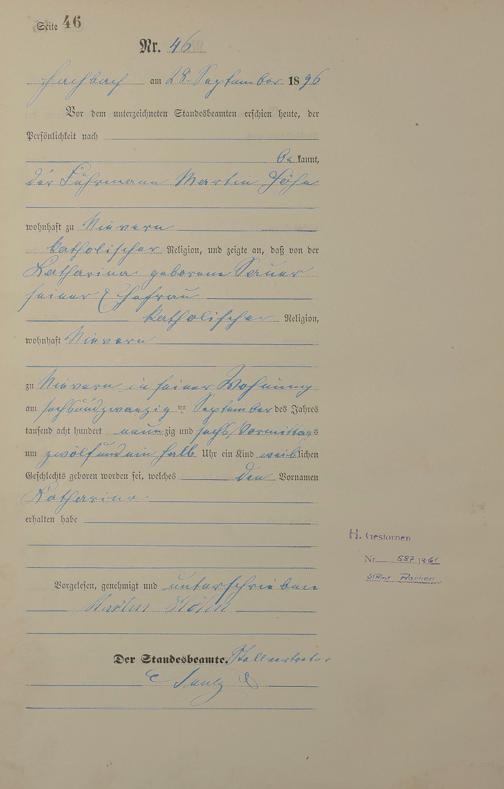 Seite 46
Nr. 46
Fachbach am 28 September 1896
Vor dem unterzeichneten Standesbeamten erschien heute, der
Persönlichkeit nach
be kannt,
der Fuhrmann Martin Höhn
wohnhaft zu Nievern
katholischer Religion, und zeigte an, daß von der
Katharina geborene Sauer
seiner Ehefrau
katholischer Religion,
wohnhaft Nievern
zu Nievern in seiner Wohnung
am sechsundzwanzig ten September des Jahres
tausend acht hundert neunzig und sechs Vormittags
um zwölf und ein halb Uhr ein Kind weiblichen
Geschlechts geboren worden sei, welches den Vornamen
Katharina
erhalten habe
H. Gestorben
Nr. 587/1961
Vorgelesen, genehmigt und unterschrieben
Martin Höhn
Der Standesbeamte, Stellvertreter